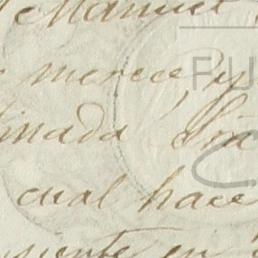 Manuel
merece y
inada Sin
cual hace
siente en